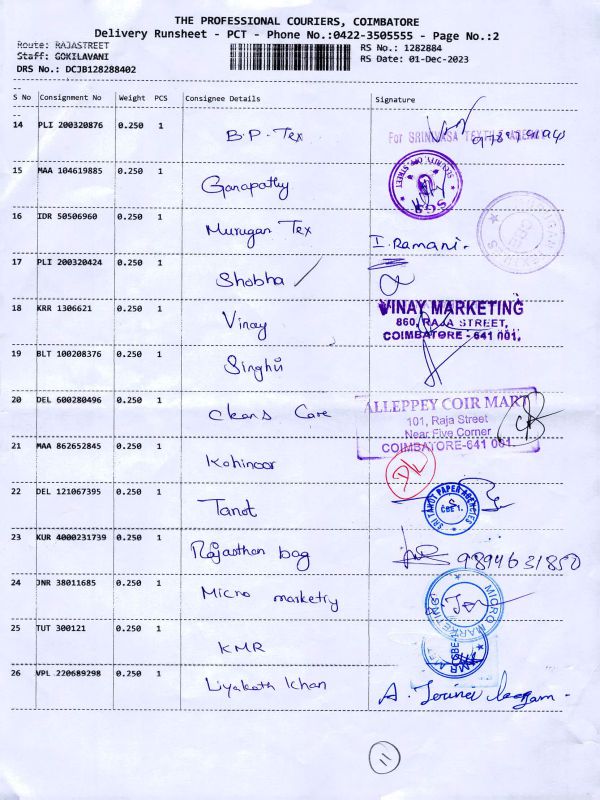 THE PROFESSIONAL COURIERS, COIMBATORE
Delivery Runsheet - PCT - Phone No.:0422-3505555 - Page No.:2
Route: RAJASTREET
Staff: GOKILAVANI
DRS No.: DCJB128288402
RS No.: 1282884
RS Date: 01-Dec-2023
S No Consignment No Weight PCS Consignee Details Signature
14 PLI 200320876 0.250 1 B.P. Tex
For SRINIVASA TEXTILE
15 MAA 104619885 0.250 1 Ganapathy
S.G.S
STREET
16 IDR 50506960 0.250 1 Murugan Tex I. Ramani.
17 PLI 200320424 0.250 1 Shobha
18 KRR 1306621 0.250 1 Vinay
VINAY MARKETING
860, RAJA STREET,
COIMBATORE - 641 001.
19 BLT 100208376 0.250 1 Singhvi
20 DEL 600280496 0.250 1 Cleans Care
ALLEPPEY COIR MART
101, Raja Street
Near Five Corner
COIMBATORE-641 001.
21 MAA 862652845 0.250 1 Kohinoor DL
22 DEL 121067395 0.250 1 Tanot
SRI TANOT PAPER AGENCIES
CBE 1.
23 KUR 4000231739 0.250 1 Rajasthan bag 9894631850
24 JNR 38011685 0.250 1 Micro marketry
MICRO MARKETING
25 TUT 300121 0.250 1 KMR
26 VPL 220689298 0.250 1 Liyakath Khan
11